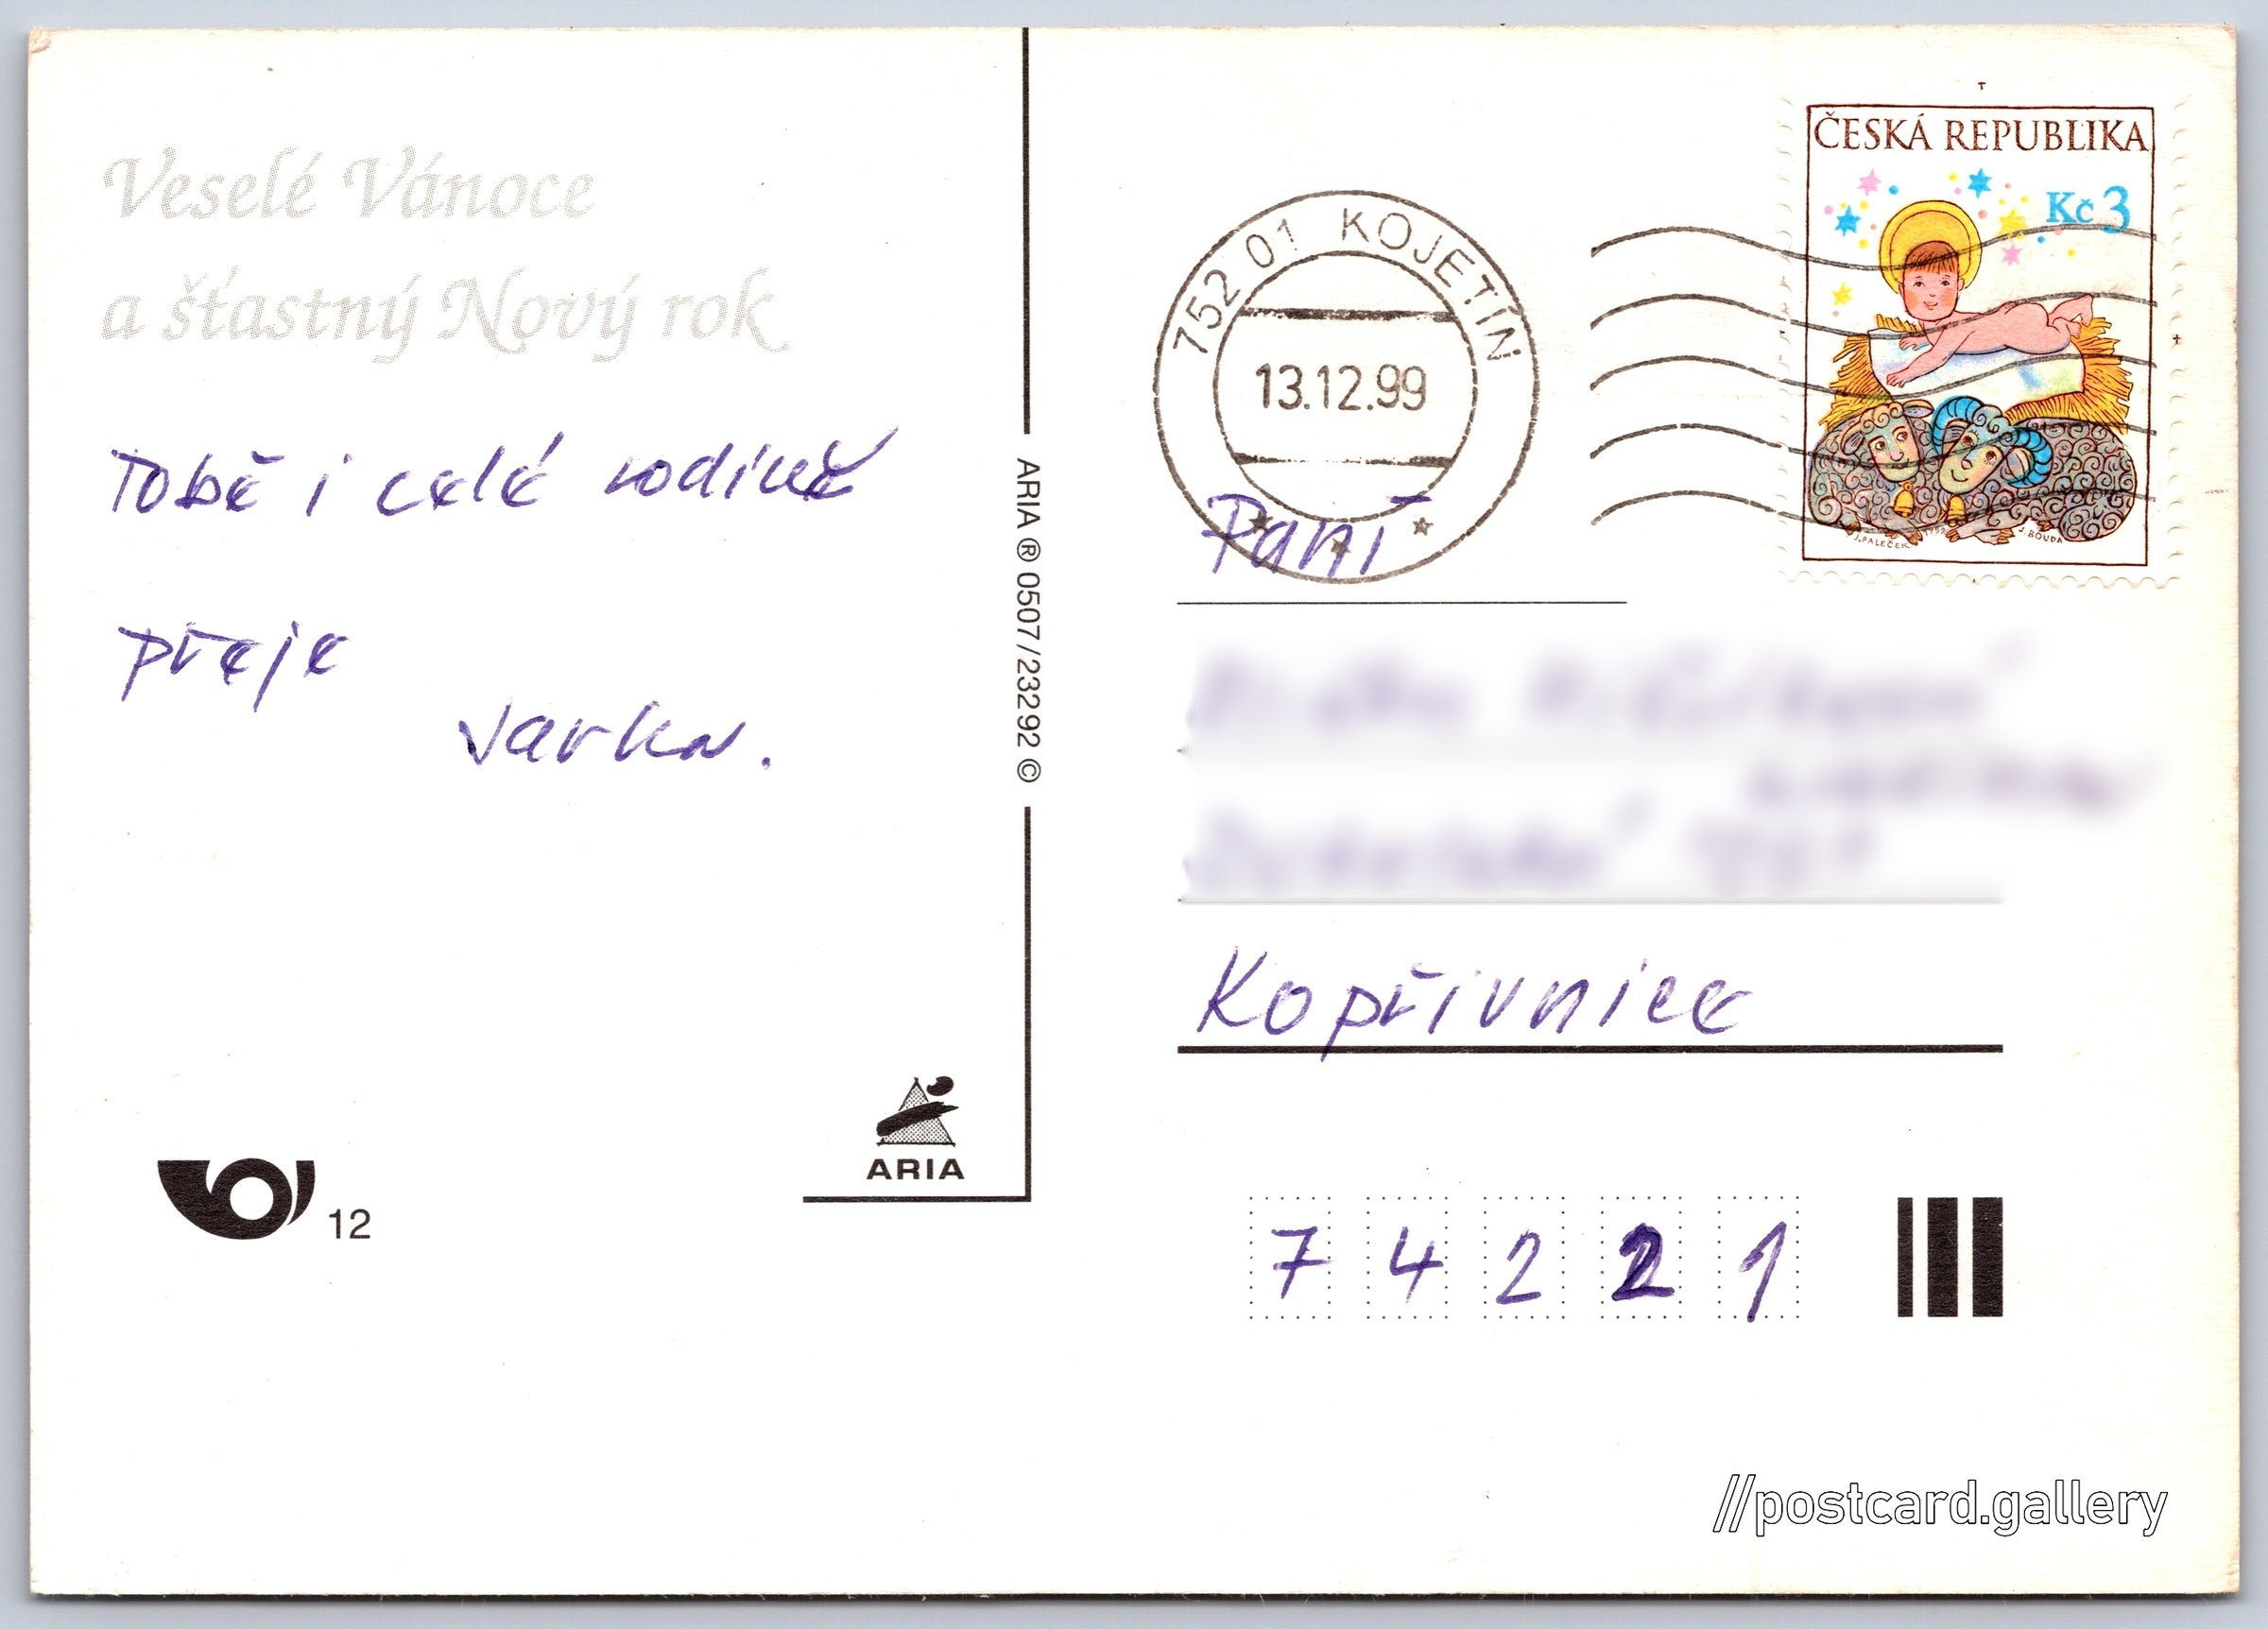 Veselé Vánoce
a šťastný Nový rok
Tobě i celé rodině
přeje
Jarka.
ARIA ® 0507/23292 ©
ARIA
12
752 01 KOJETÍN
13.12.99
ČESKÁ REPUBLIKA
Kč 3
J. PALEČEK 1999 J. BOUDA
Paní
Kopřivnice
7 4 2 2 1
//postcard.gallery